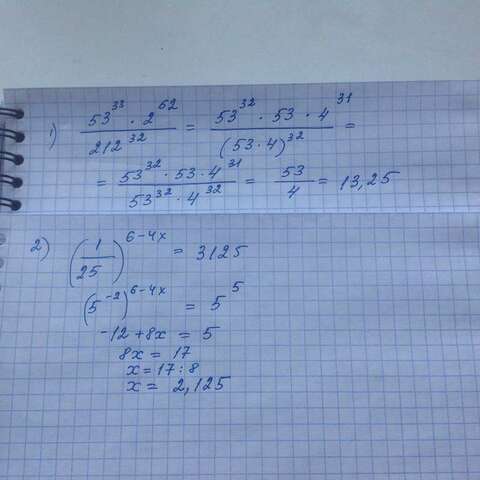 1) 53³³ · 2⁶² / 212³² = 53³² · 53 · 4³¹ / (53 · 4)³² =
= 53³² · 53 · 4³¹ / 53³² · 4³² = 53 / 4 = 13,25
2) (1 / 25)⁶⁻⁴ˣ = 3125
(5⁻²)⁶⁻⁴ˣ = 5⁵
-12 + 8x = 5
8x = 17
x = 17 : 8
x = 2,125